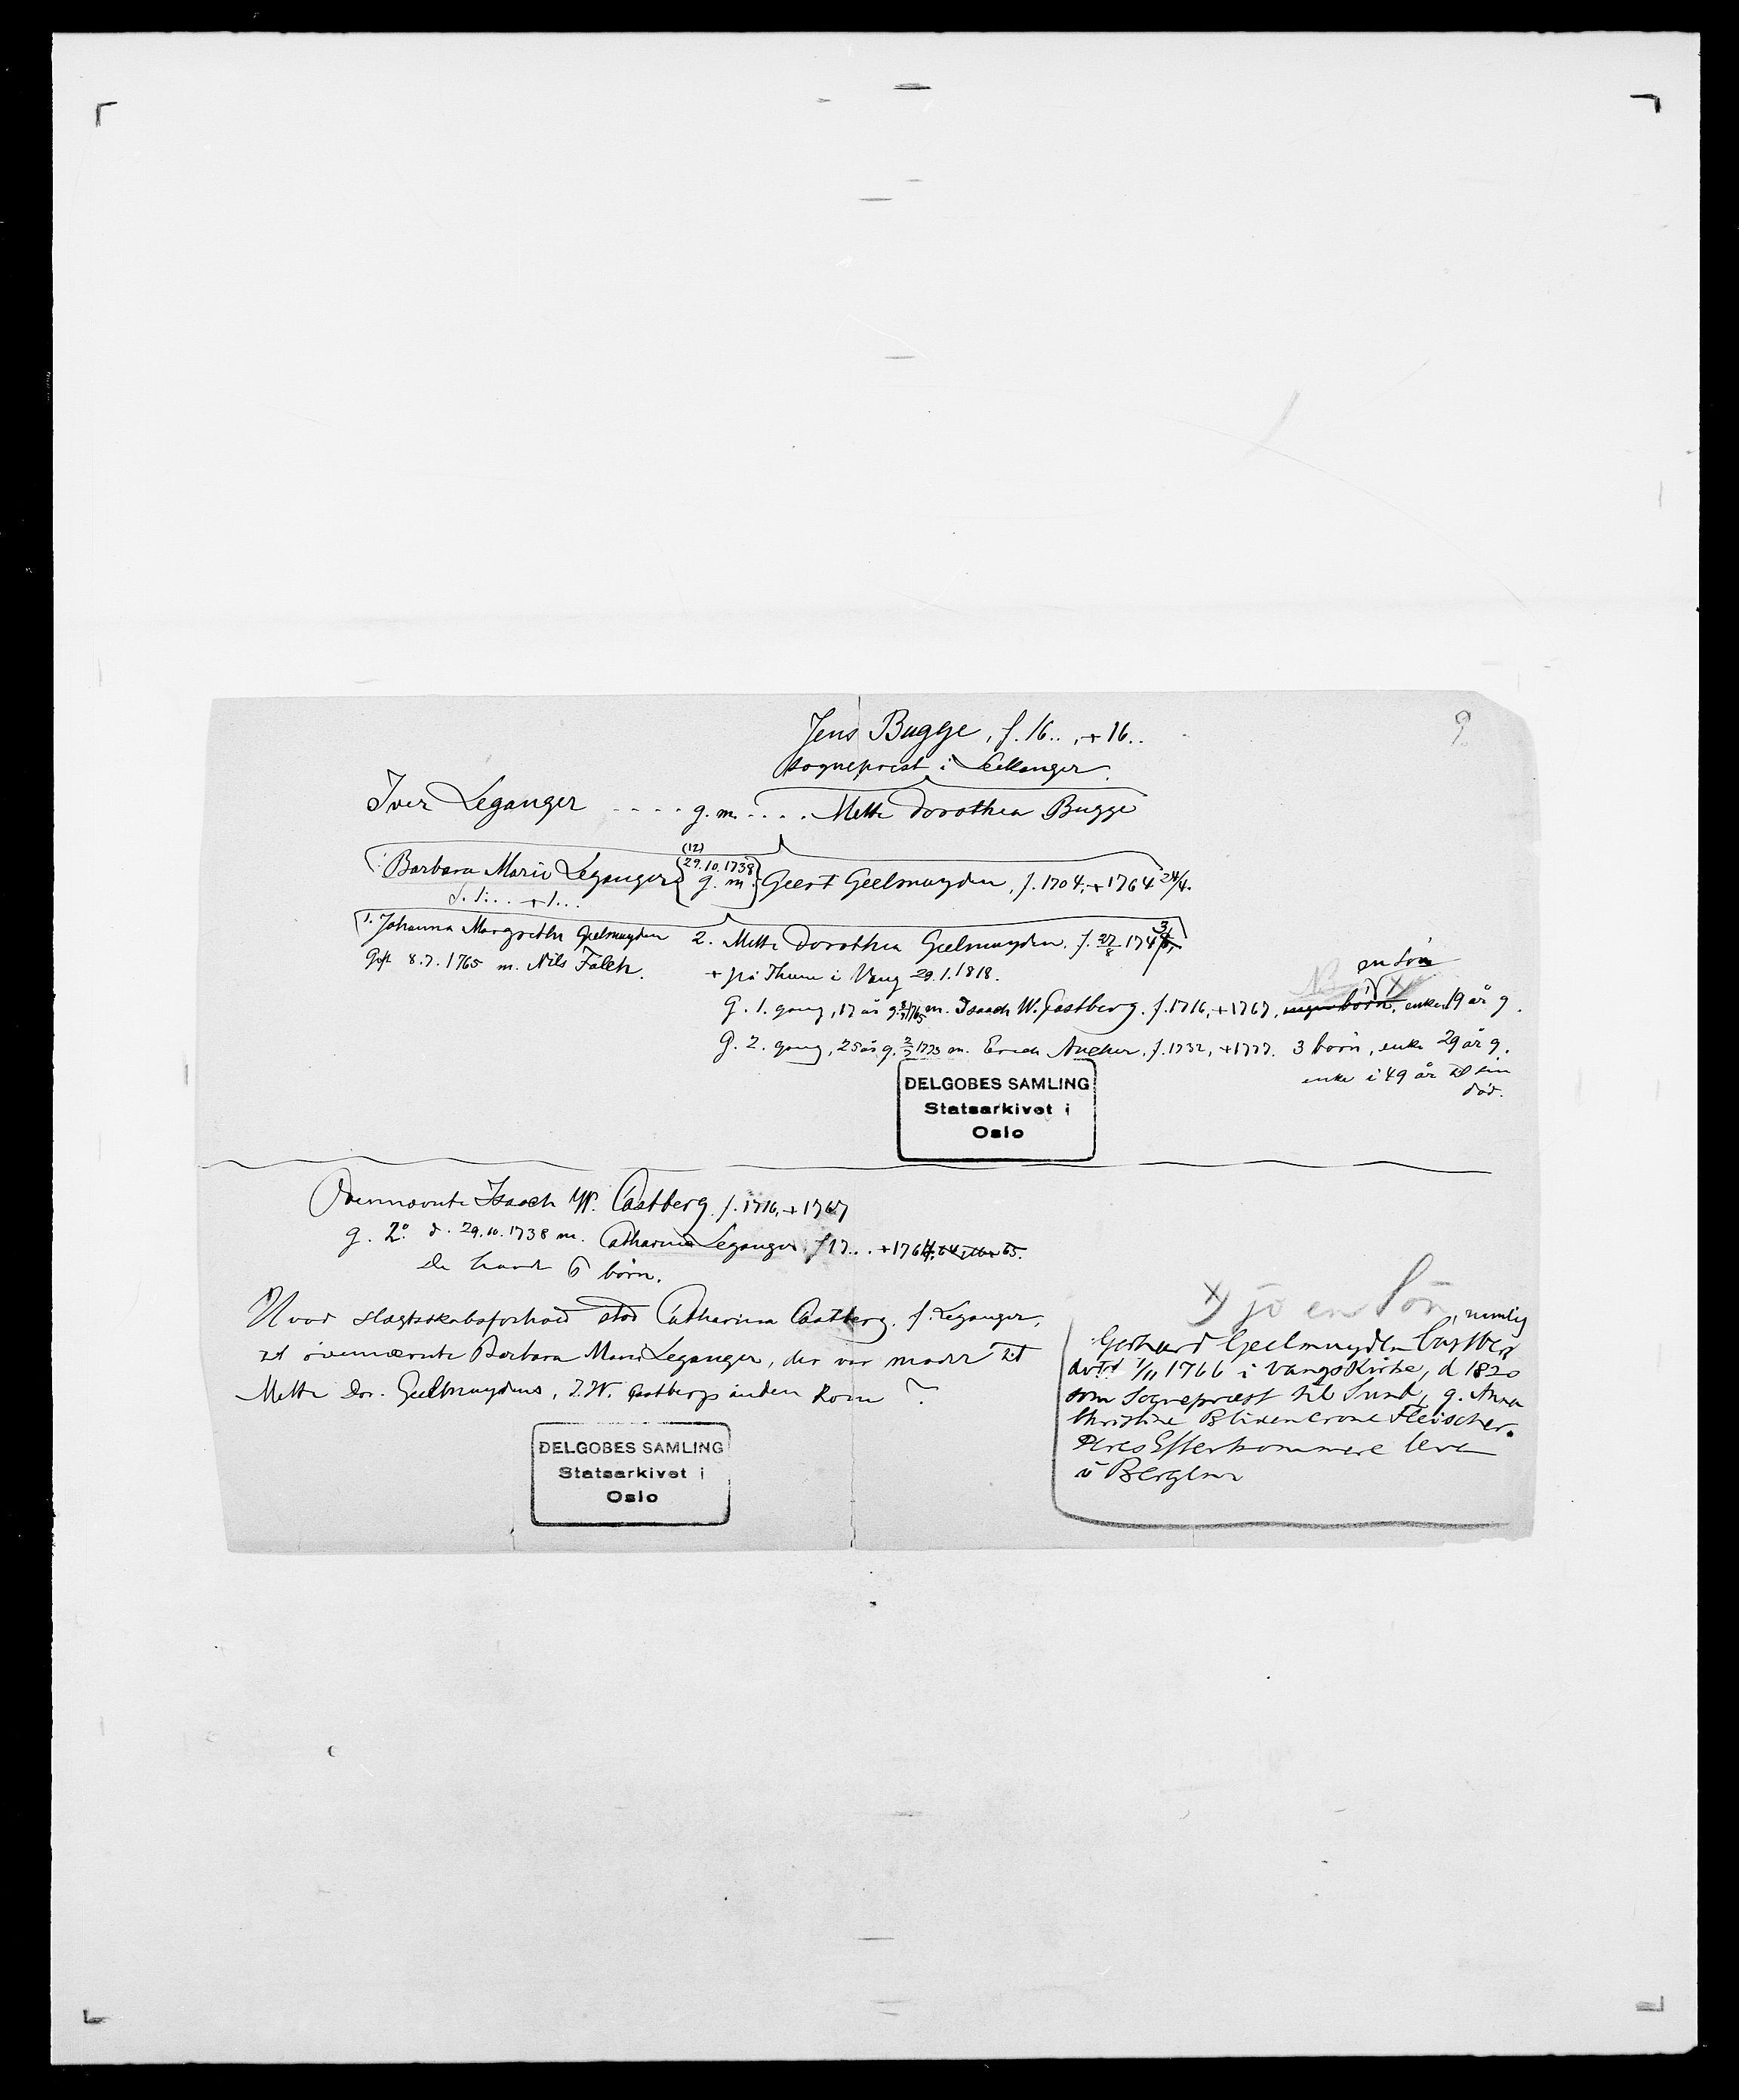 9.
Jens Bugge, f. 16.., + 16..
sogneprest i Leikanger.
Iver Leganger .... g. m. .... Mette Dorothea Bugge
(12)
29.10.1738
Barbara Marie Leganger g. m. Geert Geelmuyden, f. 1704, + 1764 24/4.
f. 1... + 1...
1. Johanna Margrethe Geelmuyden 2. Mette Dorothea Geelmuyden. f. 27/8 174
Gift 8.7.1765 m. Nils Falch. + på Thune i Vang 29.1.1818.
en Søn
NB X
G. 1. gang, 17 år g. m. Isaach W. Castberg. f. 1716, + 1767, ingen børn, enke 19 år g.
G. 2. gang, 25 år g. 2/7 1773 m. Erich Ancher, f. 1732, + 1777. 3 børn, enke 29 år g.
enke i 49 år til sin
død.
DELGOBES SAMLING
Statsarkivet i
Oslo
Ovennævnte Isaach W. Castberg f. 1716, + 1767
g. 2° d. 29.10.1738 m. Catharina Leganger, f 17... + 1764, 65.
De havde 6 børn.
Hvad slagtskabsforhold stod Catharina Castberg, f. Leganger,
til ovennævnte Barbara Marie Leganger, der var moder til
Mette Dor. Geelmuydens, I. W. Castbergs anden kone?
x) jo en Søn, nemlig
Gerhard Geelmuyden Castberg
døbt 1/11 1766 i Vangs Kirke, d 1820
som Sogneprest til Sund, g. Anna
Christine Blixencrone Fleischer.
Deres Efterkommere leve
i Bergen
DELGOBES SAMLING
Statsarkivet i
Oslo